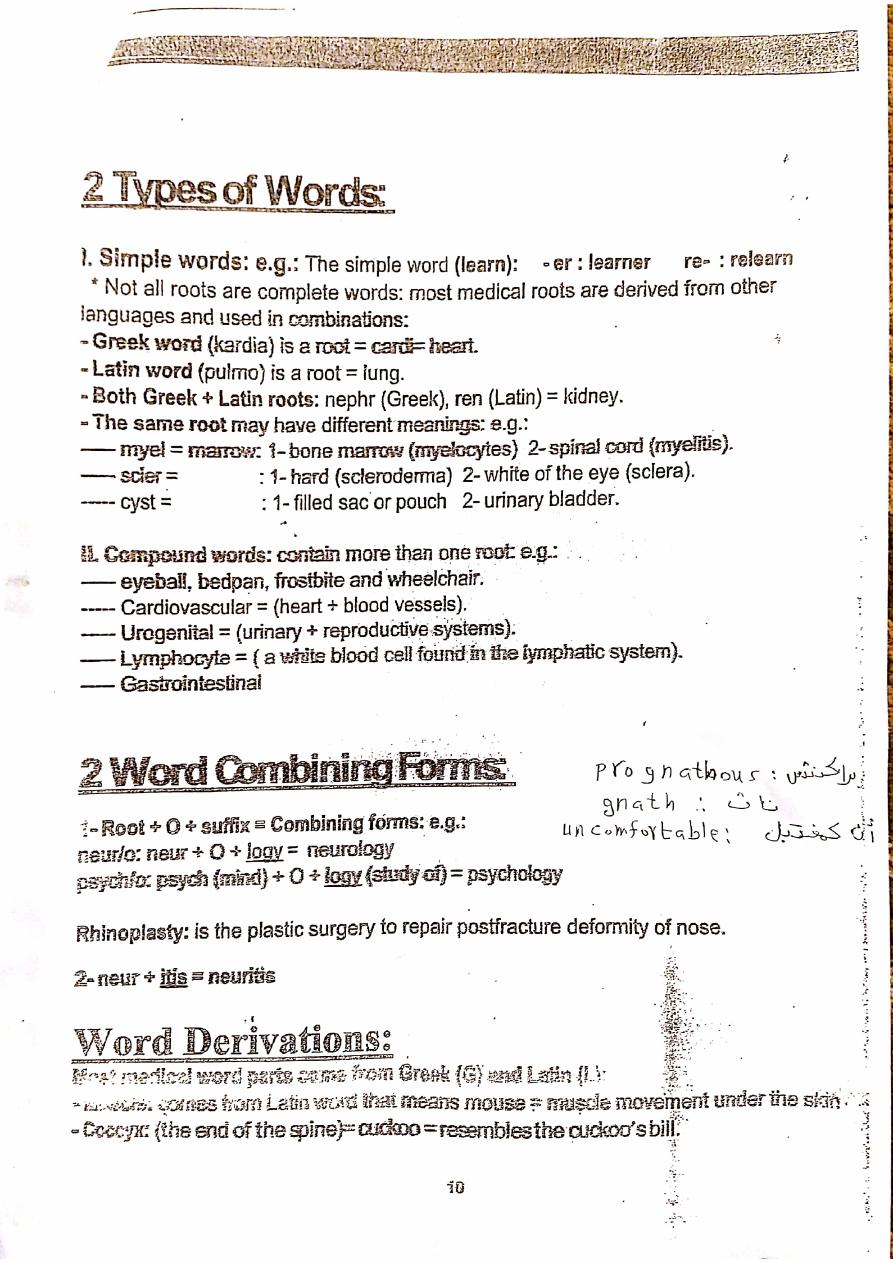 2 Types of Words:
I. Simple words: e.g.: The simple word (learn): -er : learner re- : relearn
* Not all roots are complete words: most medical roots are derived from other
languages and used in combinations:
- Greek word (kardia) is a root = cardi= heart.
- Latin word (pulmo) is a root = lung.
- Both Greek + Latin roots: nephr (Greek), ren (Latin) = kidney.
- The same root may have different meanings: e.g.:
----- myel = marrow: 1- bone marrow (myelocytes) 2- spinal cord (myelitis).
----- scler = : 1- hard (scleroderma) 2- white of the eye (sclera).
----- cyst = : 1- filled sac or pouch 2- urinary bladder.
II. Compound words: contain more than one root: e.g.:
----- eyeball, bedpan, frostbite and wheelchair.
----- Cardiovascular = (heart + blood vessels).
----- Urogenital = (urinary + reproductive systems).
----- Lymphocyte = ( a white blood cell found in the lymphatic system).
----- Gastrointestinal
2 Word Combining Forms:
prognathous :
gnath : ناث
uncomfortable: أن كمفتبل
1- Root + O + suffix = Combining forms: e.g.:
neur/o: neur + O + logy = neurology
psych/o: psych (mind) + O + logy (study of) = psychology
Rhinoplasty: is the plastic surgery to repair postfracture deformity of nose.
2- neur + itis = neuritis
Word Derivations:
Most medical word parts come from Greek (G) and Latin (L):
comes from Latin word that means mouse = muscle movement under the skin.
- Coccyx: (the end of the spine)= cuckoo = resembles the cuckoo's bill.
10